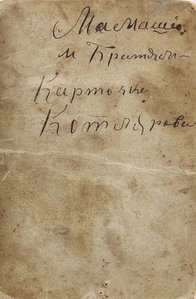 Мамаше
и Братьям
Карточка
Котлярова